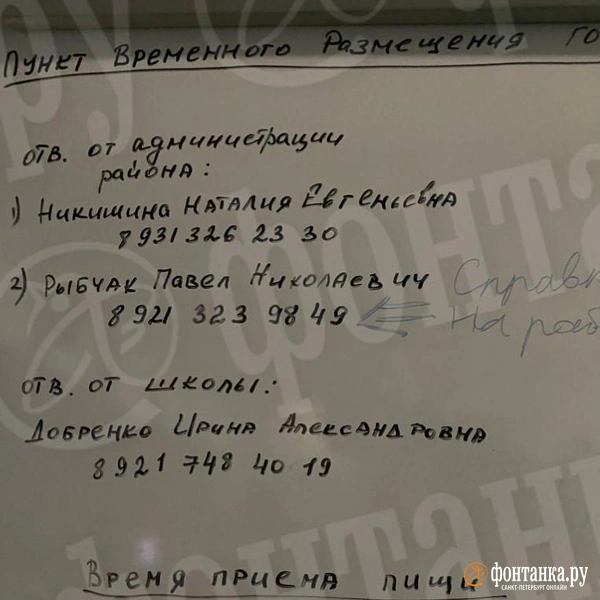 Пункт Временного Размещения го
отв. от администрации
района:
1) Никишина Наталия Евгеньевна
8 931 326 23 30
2) Рыбчак Павел Николаевич Справк
8 921 323 98 49 На раб
отв. от школы:
Добренко Ирина Александровна
8 921 748 40 19
Время приема пищи
фонтанка.ру
САНКТ-ПЕТЕРБУРГ ОНЛАЙН